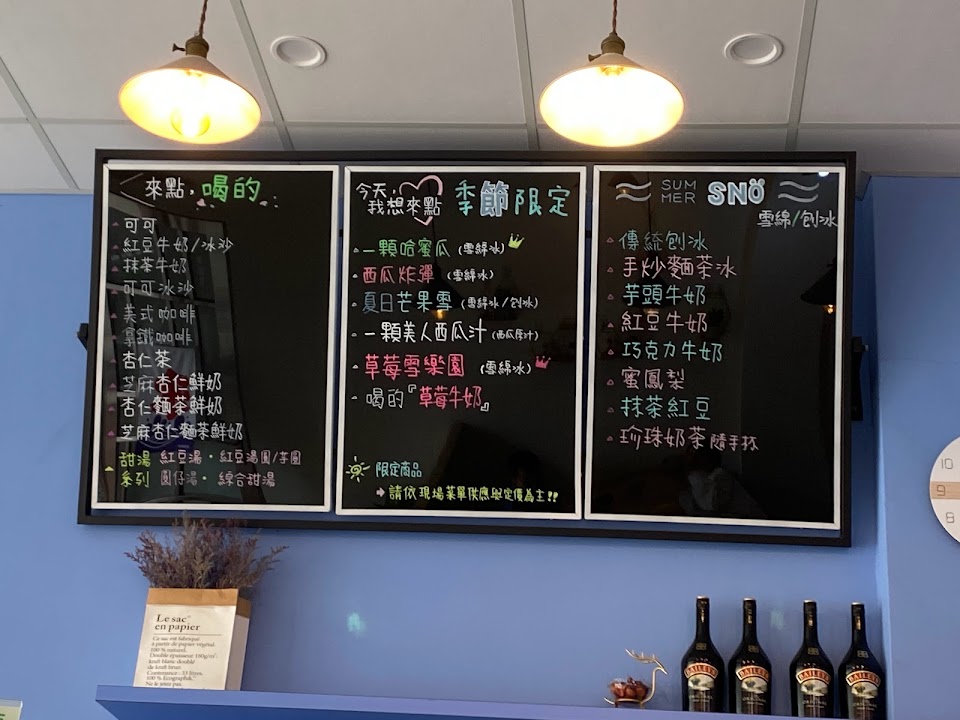 來點,喝的
可可
紅豆牛奶/冰沙
抹茶牛奶
可可冰沙
美式咖啡
拿鐵咖啡
杏仁茶
芝麻杏仁鮮奶
杏仁麵茶鮮奶
芝麻杏仁麵茶鮮奶
甜湯 紅豆湯・紅豆湯圓/芋圓
系列 圓仔湯・綜合甜湯
今天,我想來點 季節限定
一顆哈蜜瓜(雪綿冰)
西瓜炸彈(雪綿冰)
夏日芒果雪(雪綿冰/刨冰)
一顆美人西瓜汁(西瓜原汁)
草莓雪樂園(雪綿冰)
喝的『草莓牛奶』
限定商品
➡請依現場菜單供應與定價為主!!
SUMMER SNÖ
雪綿/刨冰
傳統刨冰
手炒麵茶冰
芋頭牛奶
紅豆牛奶
巧克力牛奶
蜜鳳梨
抹茶紅豆
珍珠奶茶隨手杯
10
9
8
Le sac
en papier
Ce sac est fabriqué
à partir de papier végétal
100 % naturel.
Double épaisseur 180g/m²,
kraft blanc doublé
de kraft brun
Contenance : 33 litres,
100 % Ecographik.
Ne le jetez pas.
BAILEYS
BAILEYS
BAILEYS
BAILEYS